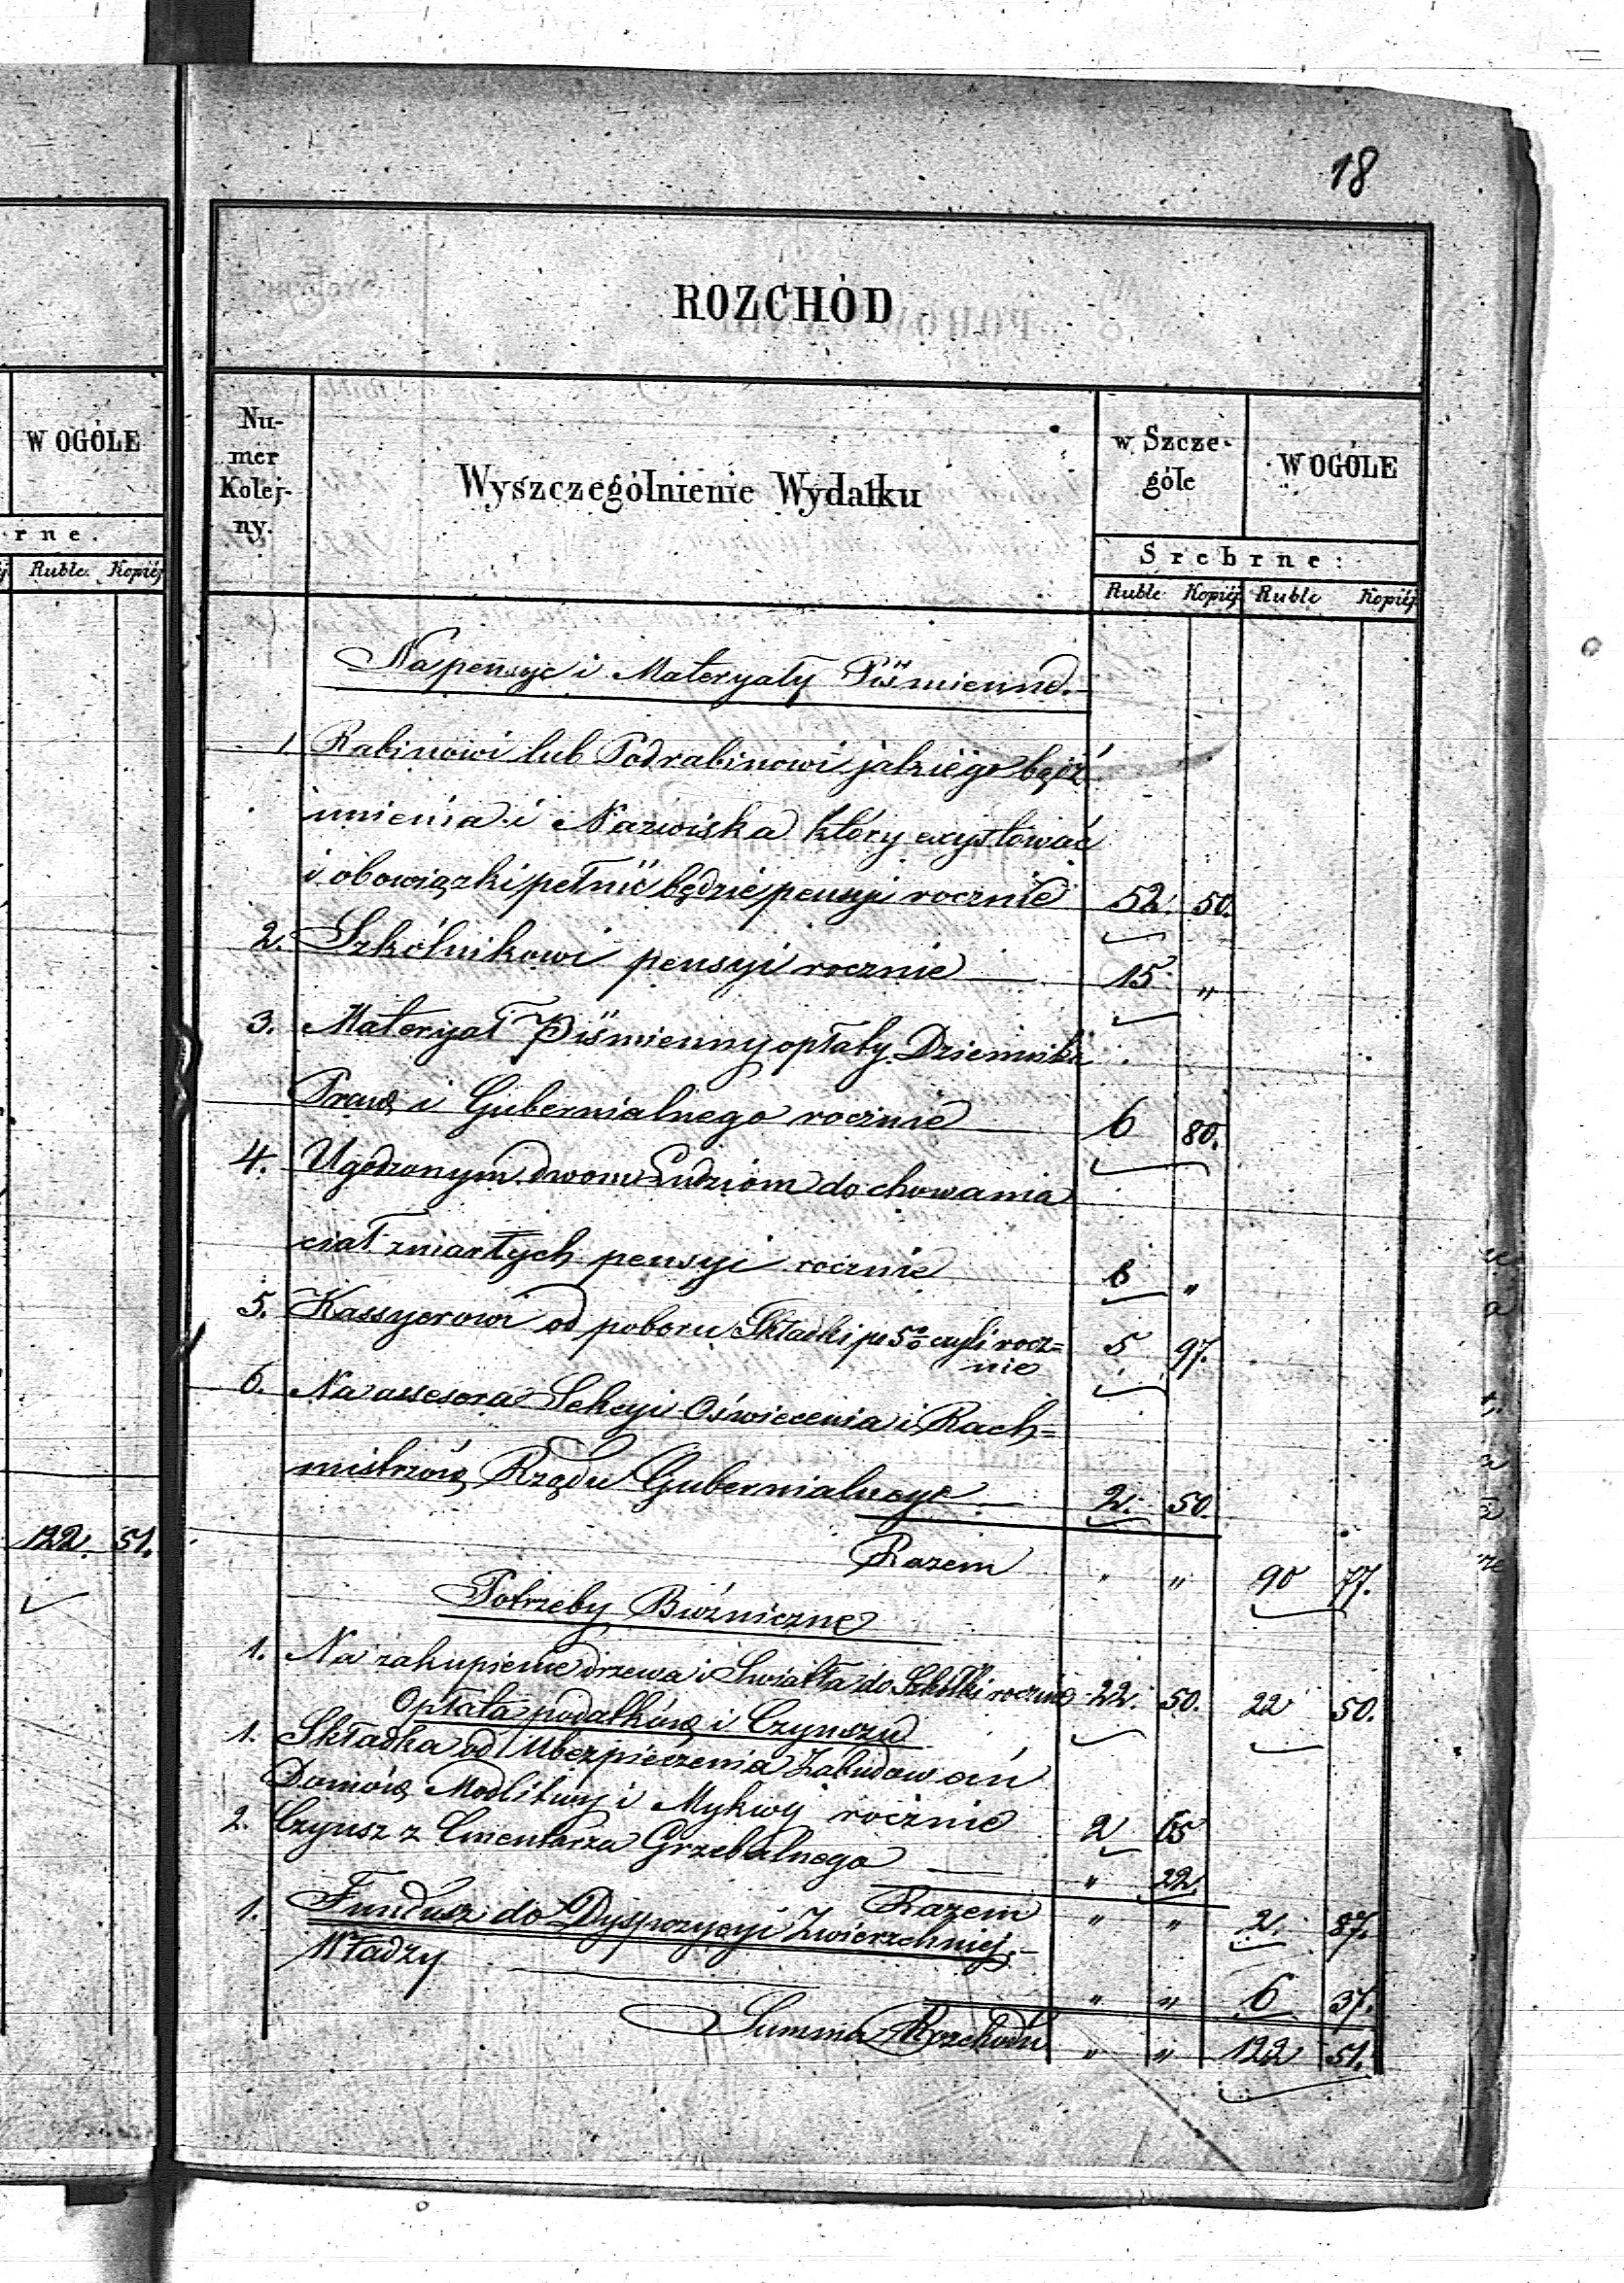 18
ROZCHÓD
W OGÓLE
rne.
Ruble. Kopiéj
122. 51.
Nu-
mer
Kolej-
ny.
Wyszczególnienie Wydatku
w Szcze-
góle
W OGÓLE
Srebrne:
Ruble Kopiéj Ruble Kopiéj
Na pensyе i Materyały Piśmienne.
1 Rabinowi lub Podrabinowi jakiego bądź
imienia i Nazwiska który exystować
i obowiązki pełnić będzie pensyi rocznie 52. 50.
2. Szkólnikowi pensyi rocznie 15 "
3. Materyał Piśmienny opłaty Dziennika
Praw i Gubernialnego rocznie 6 80.
4. Ugodzonym dwom Ludziom do chowania
ciał zmarłych pensyi rocznie 6 "
5. Kassyerowi od poboru Składki po 5% czyli rocz=
nie 5 97.
6. Na assesora Sekcyi Oświecenia i Rach=
mistrzów Rządu Gubernialnego 2. 50
Razem " " 90 77.
Potrzeby Bóżniczne
1. Na zakupienie drzewa i Swiatła do Szkółki rocznie 22. 50. 22 50.
Opłata podatków i Czynszu
1. Składka od Ubezpieczenia Zabudowań
Domów Modlitwy i Mykwy rocznie 2 65
2. Czynsz z Cmentarza Grzebalnego " 22.
Razem " " 2. 87.
1. Fundusz do Dyspozycyi Zwierzchniej
Władzy " " 6 37.
Summa Rozchodu " " 122 51.